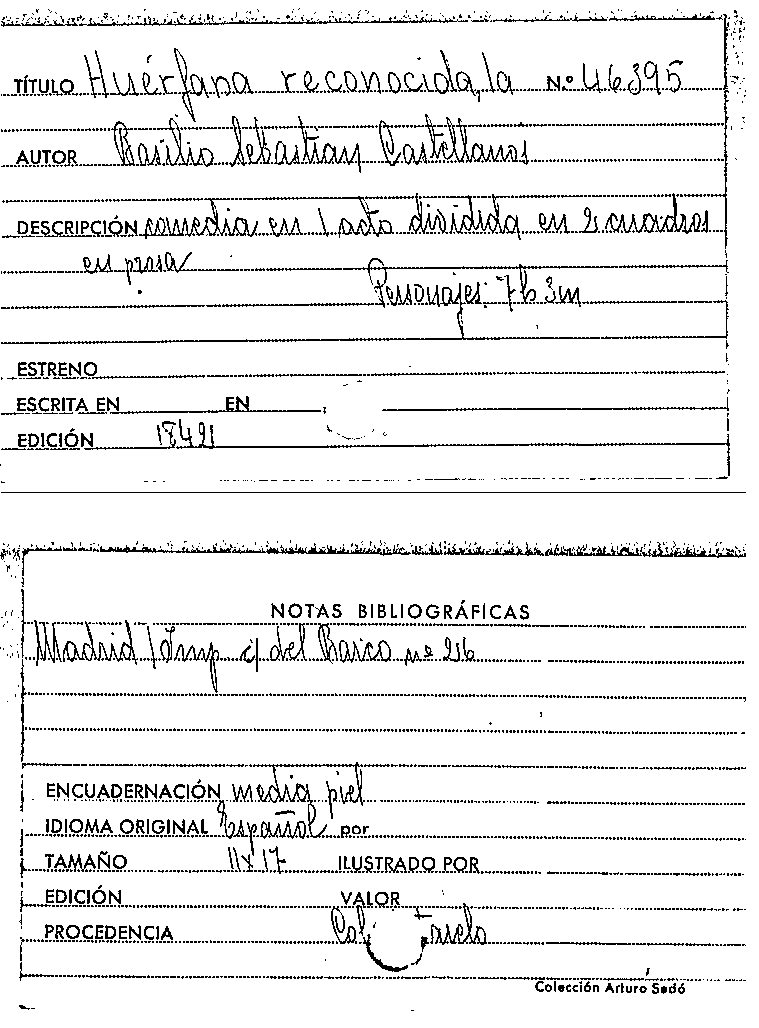 TÍTULO Huérfana reconocida, la Nº 46395
AUTOR Basilio Sebastian Castellanos
DESCRIPCIÓN comedia en 1 acto dividida en 2 cuadros
en prosa
Personajes: 7h 3m
ESTRENO
ESCRITA EN EN
EDICIÓN
NOTAS BIBLIOGRÁFICAS
Madrid / Imp c/ del Barco nº 26
ENCUADERNACIÓN media piel
IDIOMA ORIGINAL Español por
TAMAÑO 11x17 ILUSTRADO POR
EDICIÓN VALOR
PROCEDENCIA
Colección Arturo Sedó